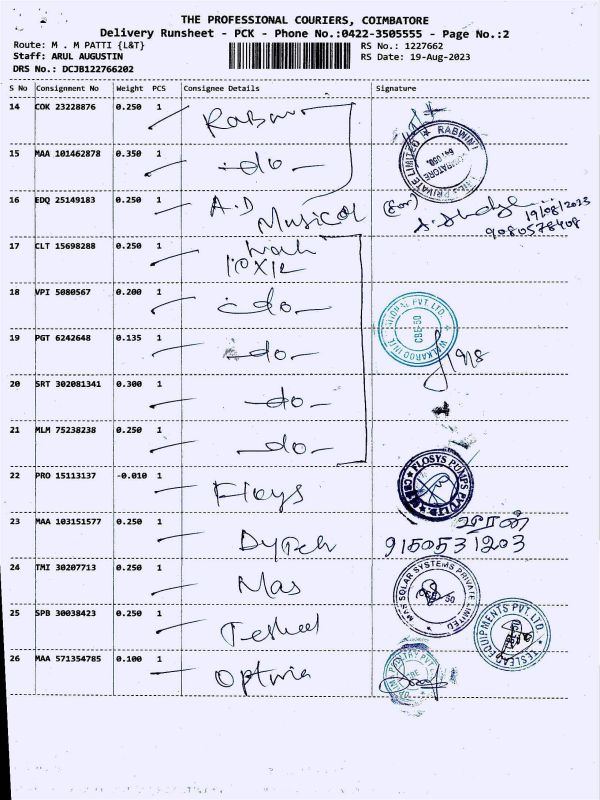 THE PROFESSIONAL COURIERS, COIMBATORE
Delivery Runsheet - PCK - Phone No.:0422-3505555 - Page No.:2
Route: M . M PATTI {L&T} RS No.: 1227662
Staff: ARUL AUGUSTIN RS Date: 19-Aug-2023
DRS No.: DCJB122766202
S No Consignment No Weight PCS Consignee Details Signature
14 COK 23228876 0.250 1
15 MAA 101462878 0.350 1 -do-
RABWIN
PRIVATE LIMITED
16 EDQ 25149183 0.250 1 A.D
Musical (for) 19/08/2023
9080578408
17 CLT 15698288 0.250 1
18 VPI 5080567 0.200 1 -do-
19 PGT 6242648 0.135 1 -do-
PVT LTD.
20 SRT 302081341 0.300 1 -do-
21 MLM 75238238 0.250 1 -do-
22 PRO 15113137 -0.010 1
FLOSYS PUMPS PVT LTD
23 MAA 103151577 0.250 1
9150531203
24 TMI 30207713 0.250 1 Mas
MAS SOLAR SYSTEMS PRIVATE LIMITED
25 SPB 30038423 0.250 1
TESLEAD EQUIPMENTS PVT. LTD.
26 MAA 571354785 0.100 1